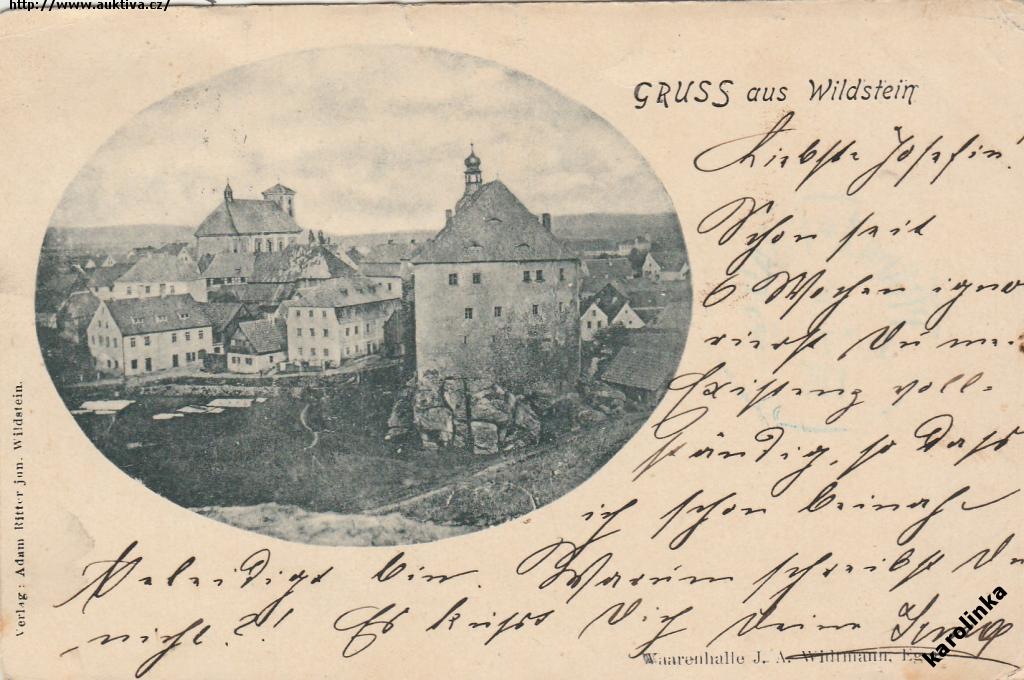 http://www.auktiva.cz/
GRUSS aus Wildstein
Liebste Josefin!
Schon seit
6 Wochen igno-
rierst Du me.
Existenz voll-
ständig, so dass
ich schon beinahe
beleidigt bin. Warum schreibst Du
nicht?! Es küsst Dich Deine
Verlag: Adam Ritter jun. Wildstein.
Waarenhalle J. A. Widtmann, Eg
karolinka